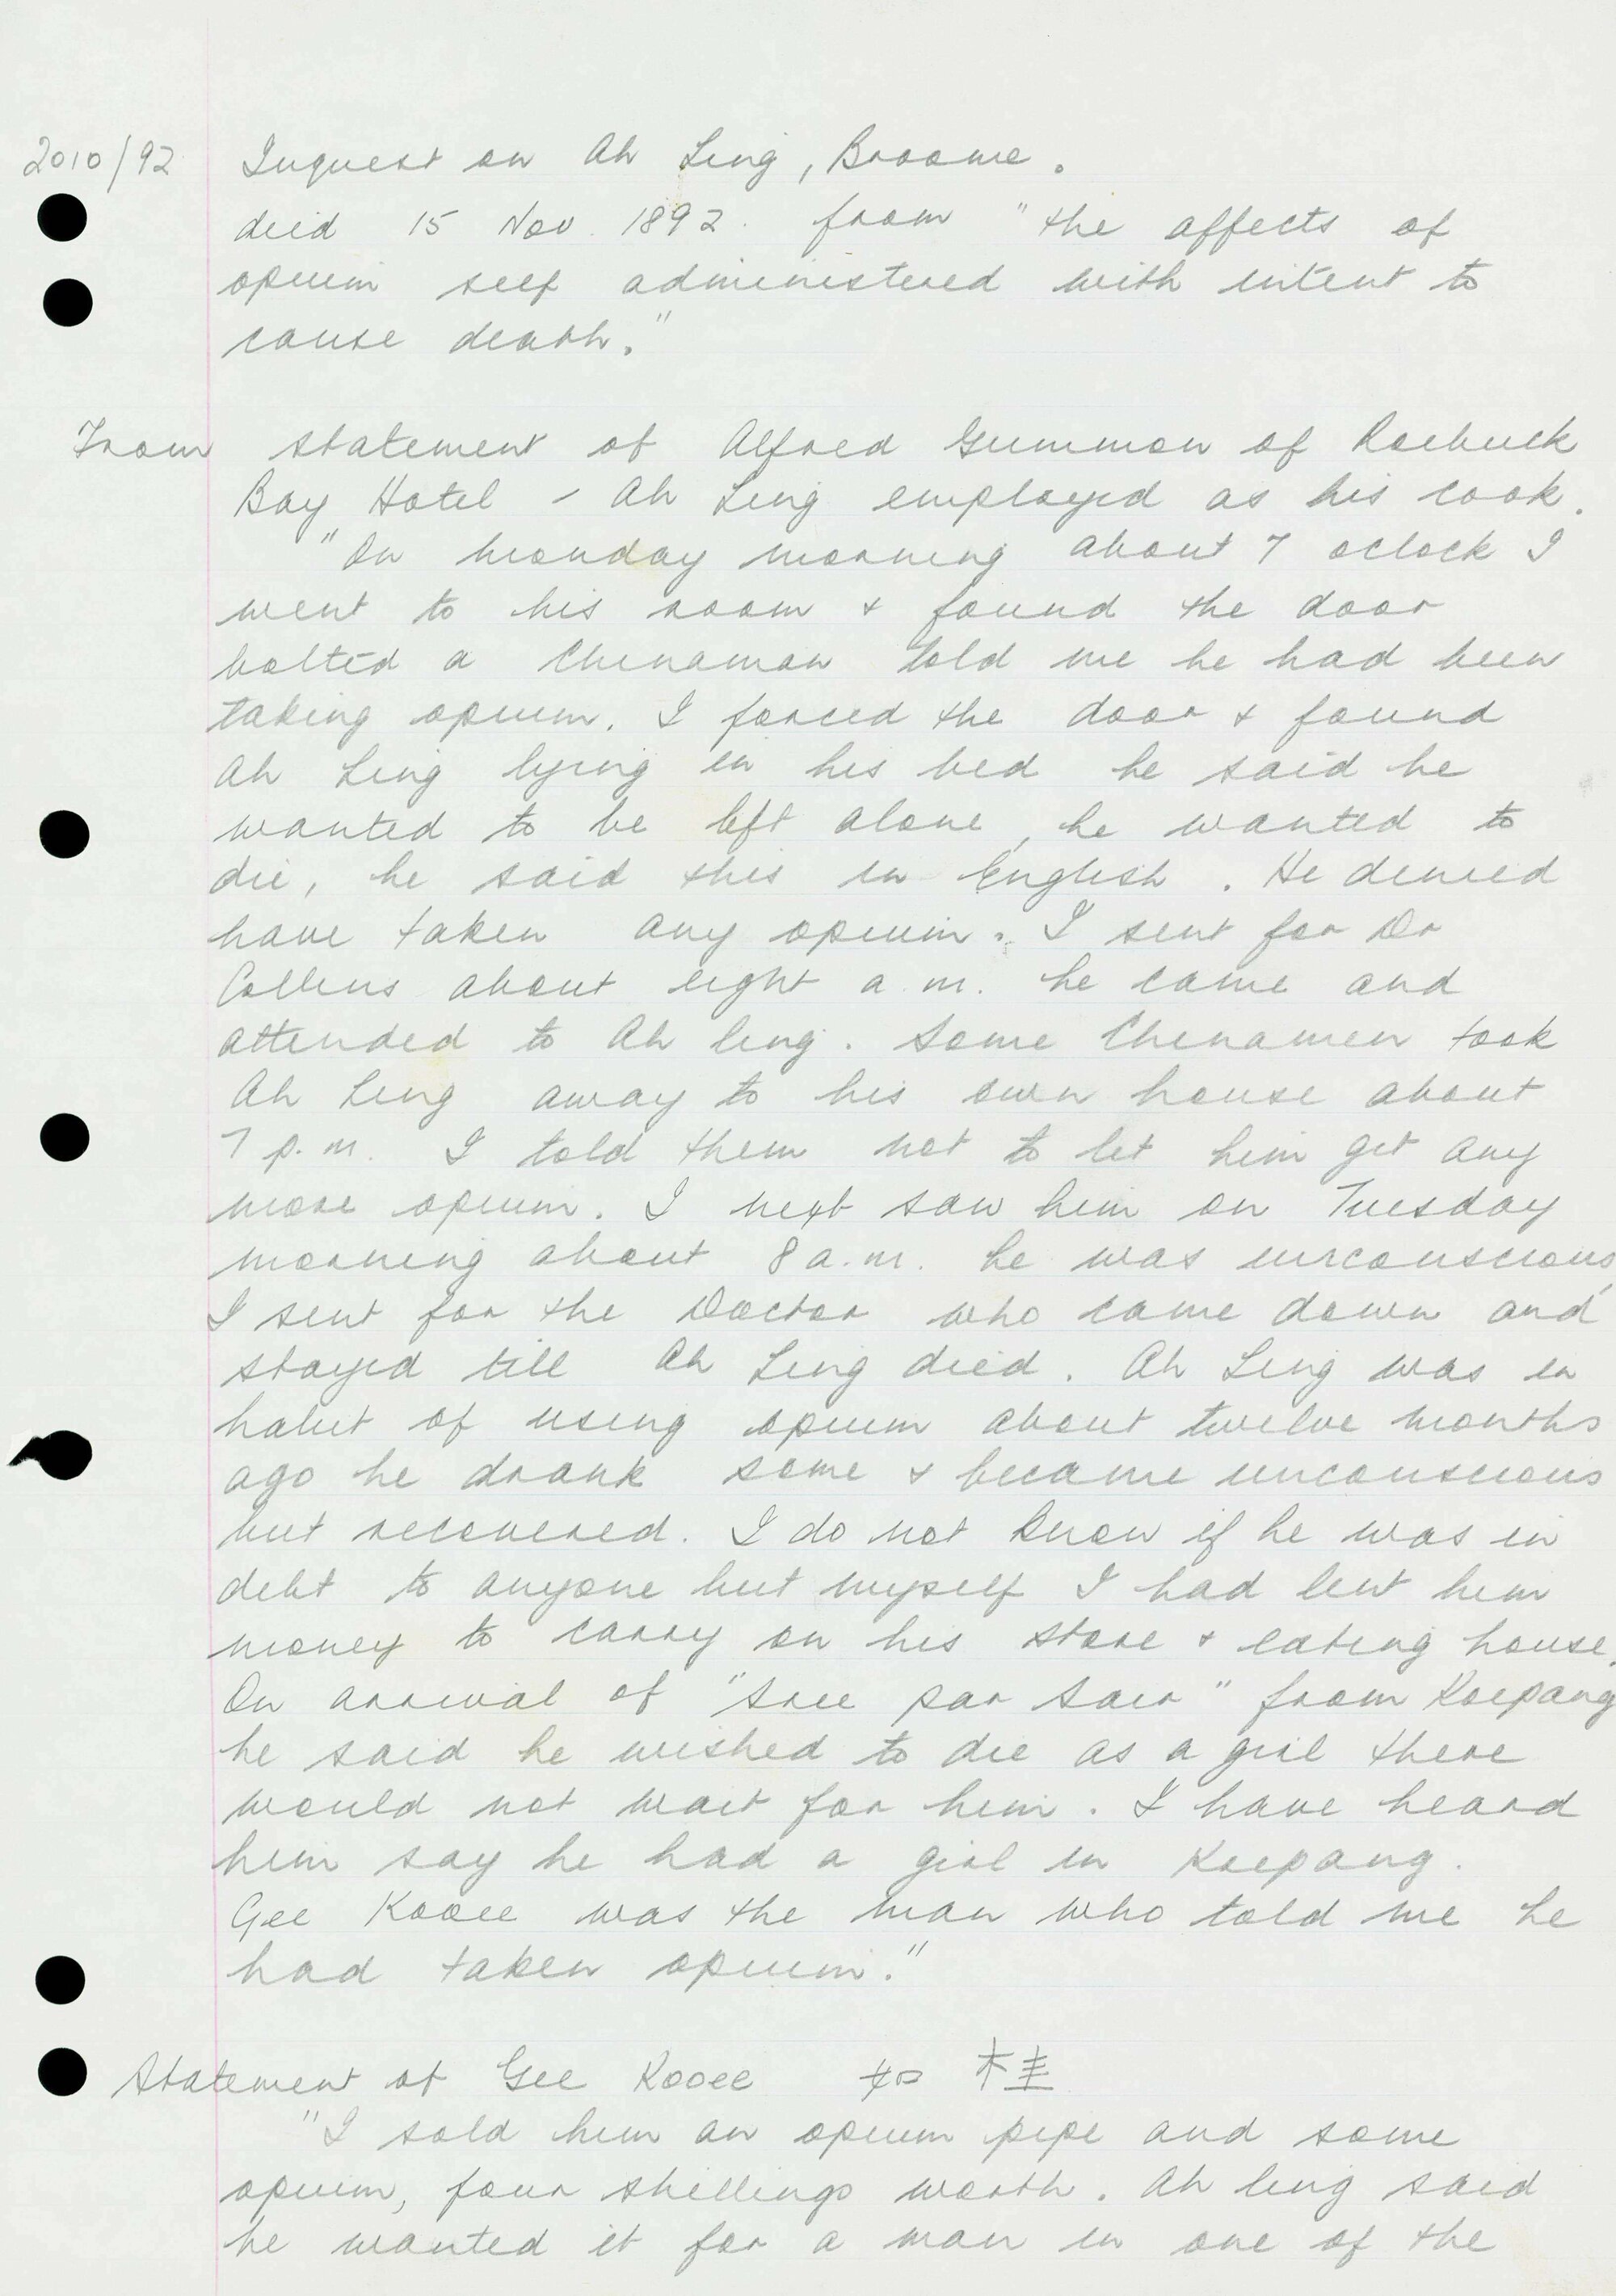 2010/92 Inquest on Ah Ling, Broome.
died 15 Nov. 1892. from "the affects of
opium self administered with intent to
cause death."
From statement of Alfred Gummon of Roebuck
Bay Hotel - Ah Ling employed as his cook.
"On monday morning about 7 oclock I
went to his room & found the door
bolted a Chinaman told me he had been
taking opium. I forced the door & found
Ah Ling lying in his bed he said he
wanted to be left alone, he wanted to
die, he said this in English. He denied
have taken any opium. I sent for Dr
Collins about eight a.m. he came and
attended to Ah ling. Some Chinamen took
Ah Ling away to his own house about
7 p.m. I told them not to let him get any
more opium. I next saw him on Tuesday
morning about 8 a.m. he was unconscious,
I sent for the Doctor who came down and
stayed till Ah Ling died. Ah Ling was in
habit of using opium about twelve months
ago he drank some & became unconscious
but recovered. I do not know if he was in
debt to anyone but myself I had lent him
money to carry on his store & eating house.
On arrival of "Sree par Sair" from Koepang
he said he wished to die as a girl there
would not wait for him. I have heard
him say he had a girl in Koepang.
Gee Kooee was the man who told me he
had taken opium."
Statement of Gee Kooee 如 桂
"I sold him an opium pipe and some
opium, four shillings worth. Ah ling said
he wanted it for a man in one of the